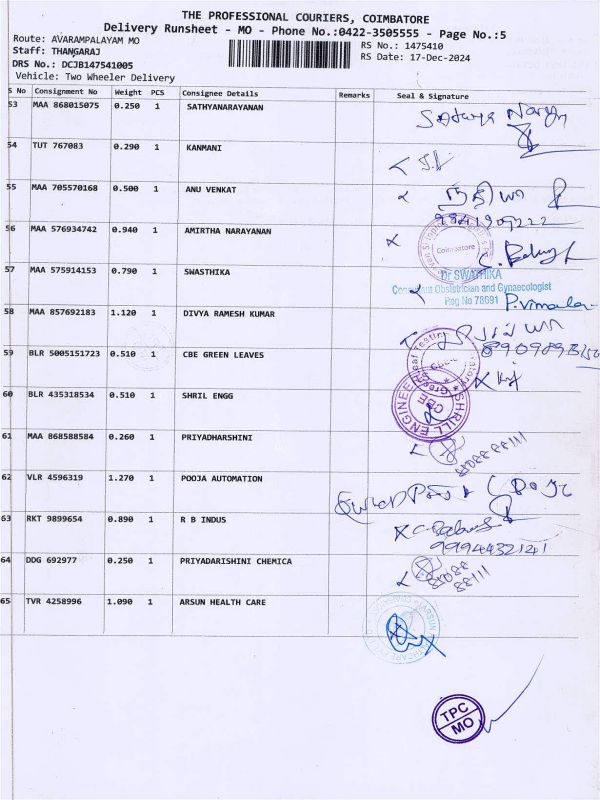 THE PROFESSIONAL COURIERS, COIMBATORE
Delivery Runsheet - MO - Phone No.:0422-3505555 - Page No.:5
Route: AVARAMPALAYAM MO
RS No.: 1475410
Staff: THANGARAJ
RS Date: 17-Dec-2024
DRS No.: DCJB147541005
Vehicle: Two Wheeler Delivery
S No Consignment No Weight PCS Consignee Details Remarks Seal & Signature
53 MAA 868015075 0.250 1 SATHYANARAYANAN
54 TUT 767083 0.290 1 KANMANI
55 MAA 705570168 0.500 1 ANU VENKAT
56 MAA 576934742 0.940 1 AMIRTHA NARAYANAN
Coimbatore
57 MAA 575914153 0.790 1 SWASTHIKA
Dr SWATHIKA
Consultant Obstetrician and Gynaecologist
Reg No 78691
58 MAA 857692183 1.120 1 DIVYA RAMESH KUMAR
59 BLR 5005151723 0.510 1 CBE GREEN LEAVES
60 BLR 435318534 0.510 1 SHRIL ENGG
SHRILL ENGINEER
CBE
61 MAA 868588584 0.260 1 PRIYADHARSHINI
62 VLR 4596319 1.270 1 POOJA AUTOMATION
63 RKT 9899654 0.890 1 R B INDUS
9994432141
64 DDG 692977 0.250 1 PRIYADARISHINI CHEMICA
65 TVR 4258996 1.090 1 ARSUN HEALTH CARE
TPC
MO